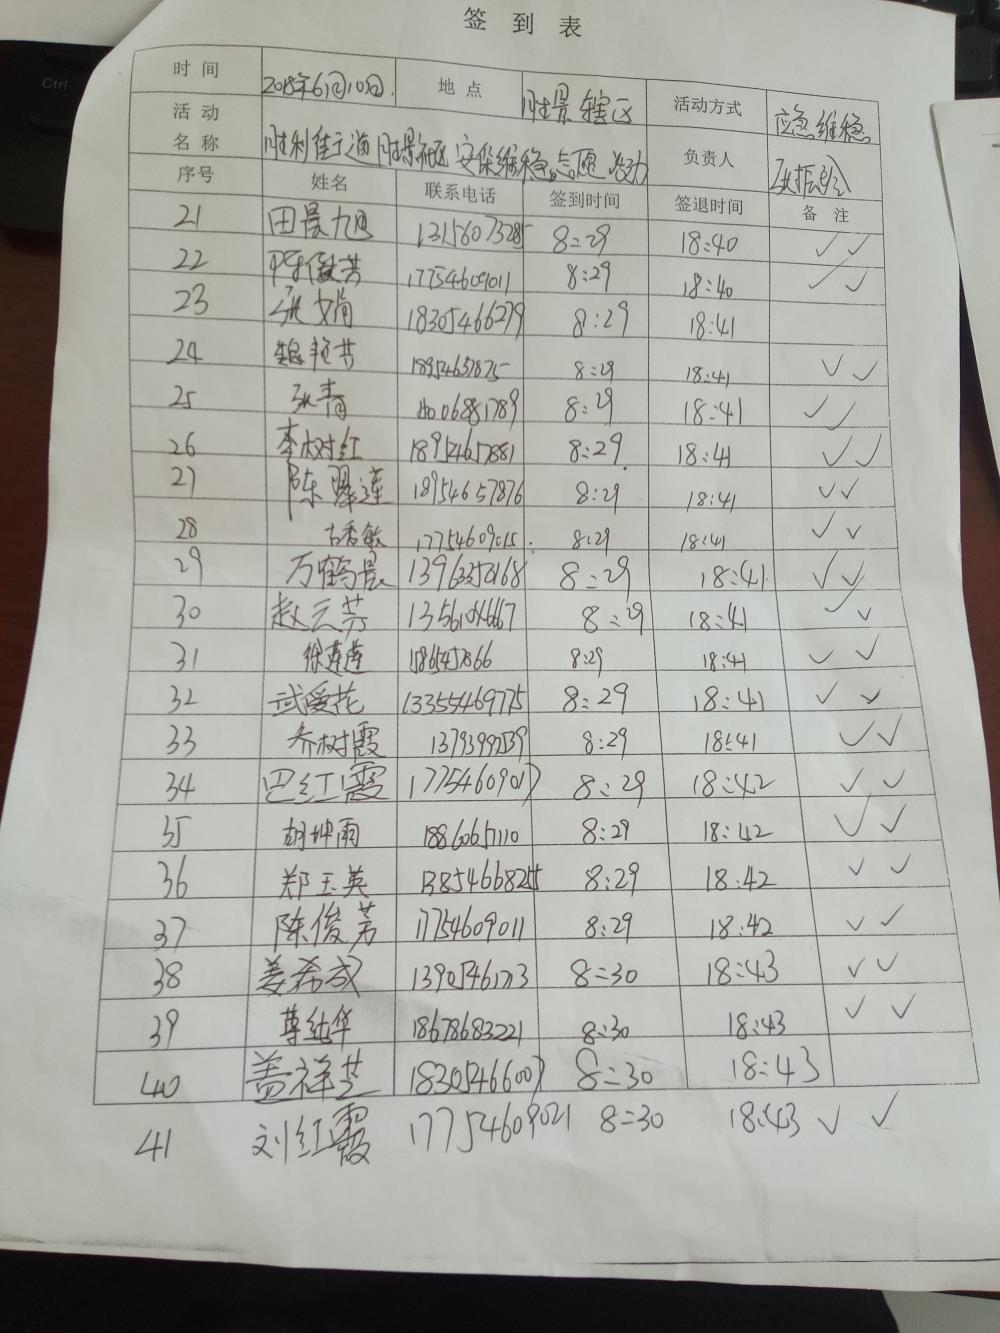 Ctrl
签 到 表
时 间 2018年6月10日. 地 点 胜景辖区 活动方式 应急维稳
活 动 名 称 胜利街道胜景社区安保维稳志愿活动 负责人
序号 姓名 联系电话 签到时间 签退时间 备 注
21 田晨旭 13156073285 8:29 18:40 ✓✓
22 陈俊芳 17754609011 8:29 18:40 ✓✓
23 张文娟 18305466279 8:29 18:41
24 艳芳 18954657875 8:29 18:41 ✓✓
25 张青 8:29 18:41 ✓✓
26 李树红 18954657881 8:29 18:41 ✓✓
27 陈翠莲 18954657876 8:29 18:41 ✓✓
28 古香敏 17754609015 8:29 18:41 ✓✓
29 万鹤晨 8:29 18:41 ✓✓
30 赵云芳 8:29 18:41 ✓✓
31 徐莲莲 8:29 18:41 ✓✓
32 武爱花 13355469775 8:29 18:41 ✓✓
33 乔树霞 8:29 18:41 ✓✓
34 巴红霞 17754609017 8:29 18:42 ✓✓
35 胡坤雨 18860657110 8:29 18:42 ✓✓
36 郑玉英 8:29 18:42 ✓✓
37 陈俊芳 17754609011 8:29 18:42 ✓✓
38 姜希成 8:30 18:43 ✓✓
39 18678683221 8:30 18:43 ✓✓
40 盖祥芝 18305466007 8:30 18:43
41 刘红霞 17754609021 8:30 18:43 ✓✓